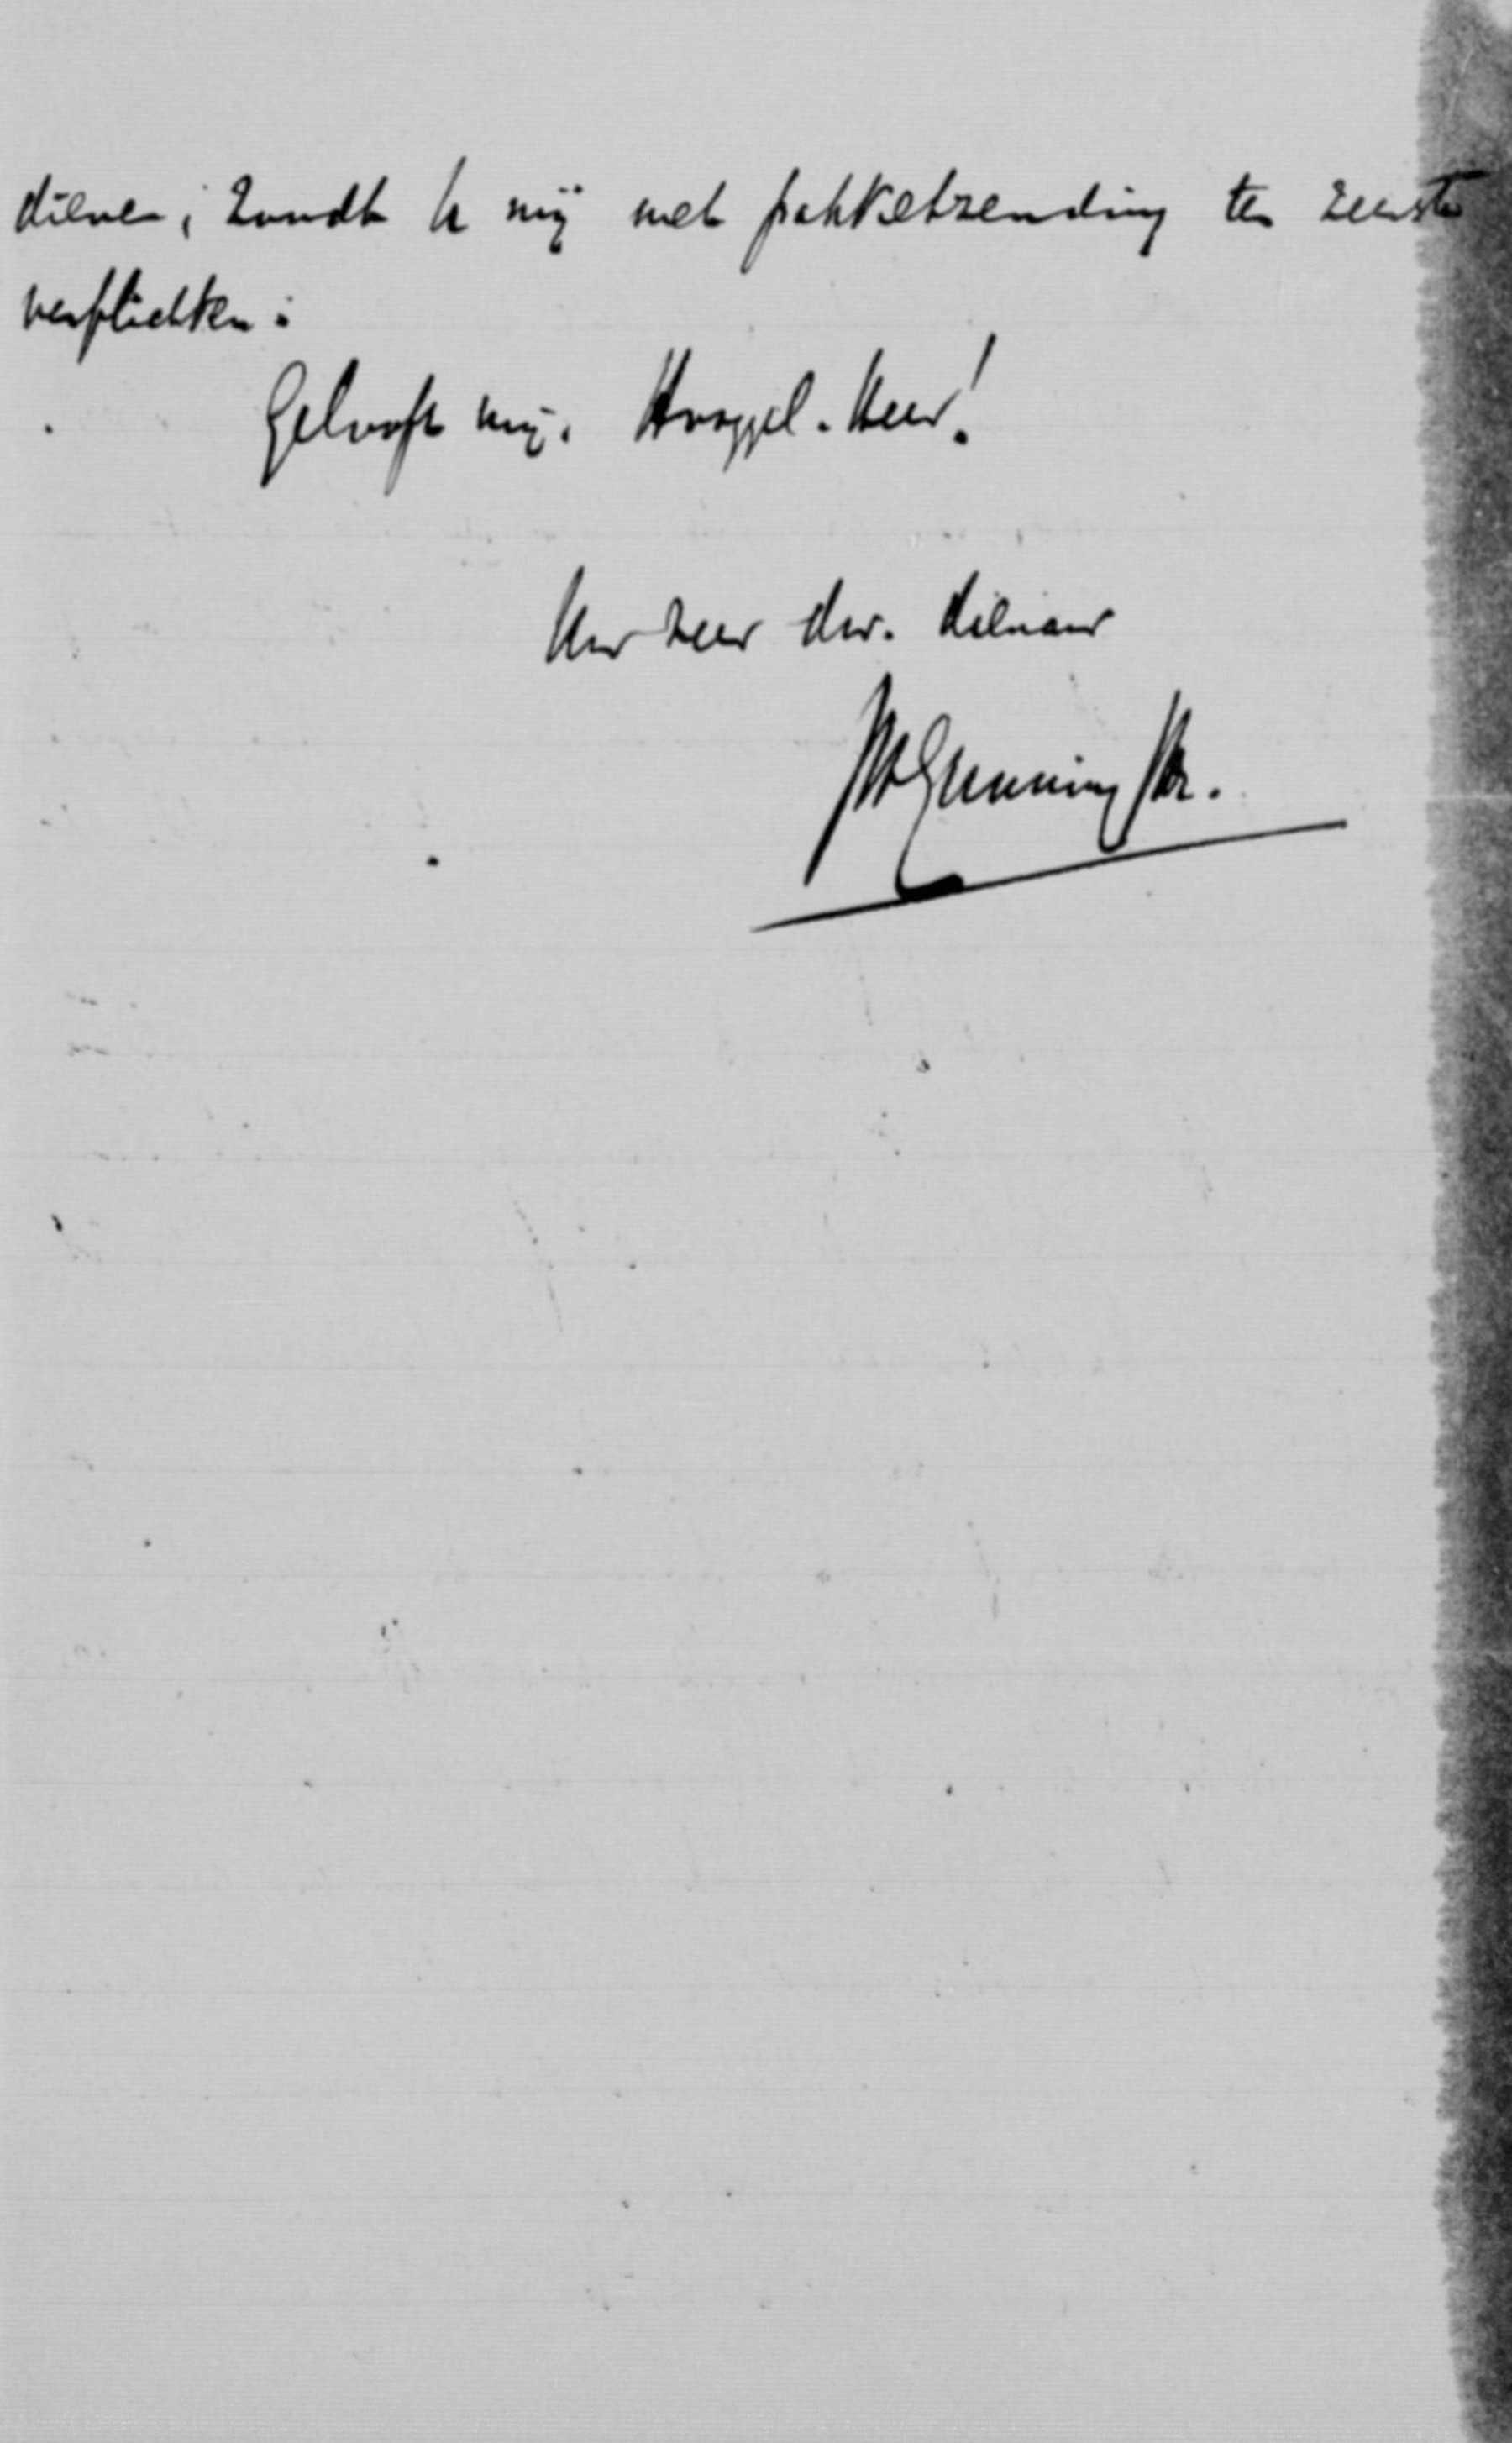 dienen, zoudt U mij met pakketzending ten zeerste
verplichten.
Gelooft mij, Hooggel. Heer!
Uw zeer dw. dienaar
JH Gunning JHz.